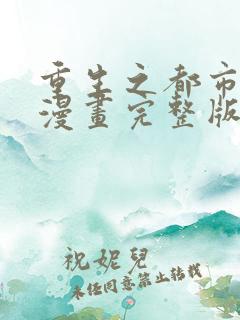 重生之都市
漫畫完整版
祝妮兒
未经同意禁止转载